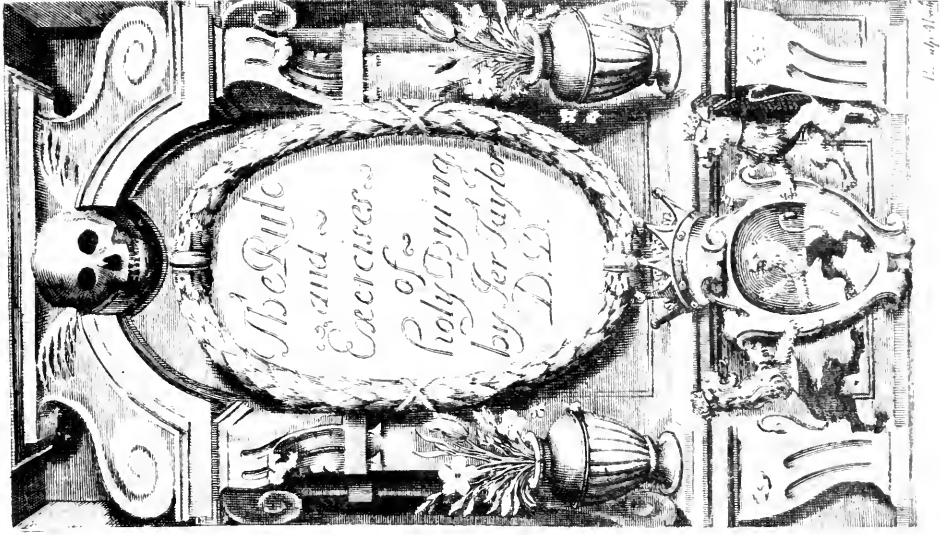 The Rule
and
Exercises
of
Holy Dying
by Jer Taylor
D. D.